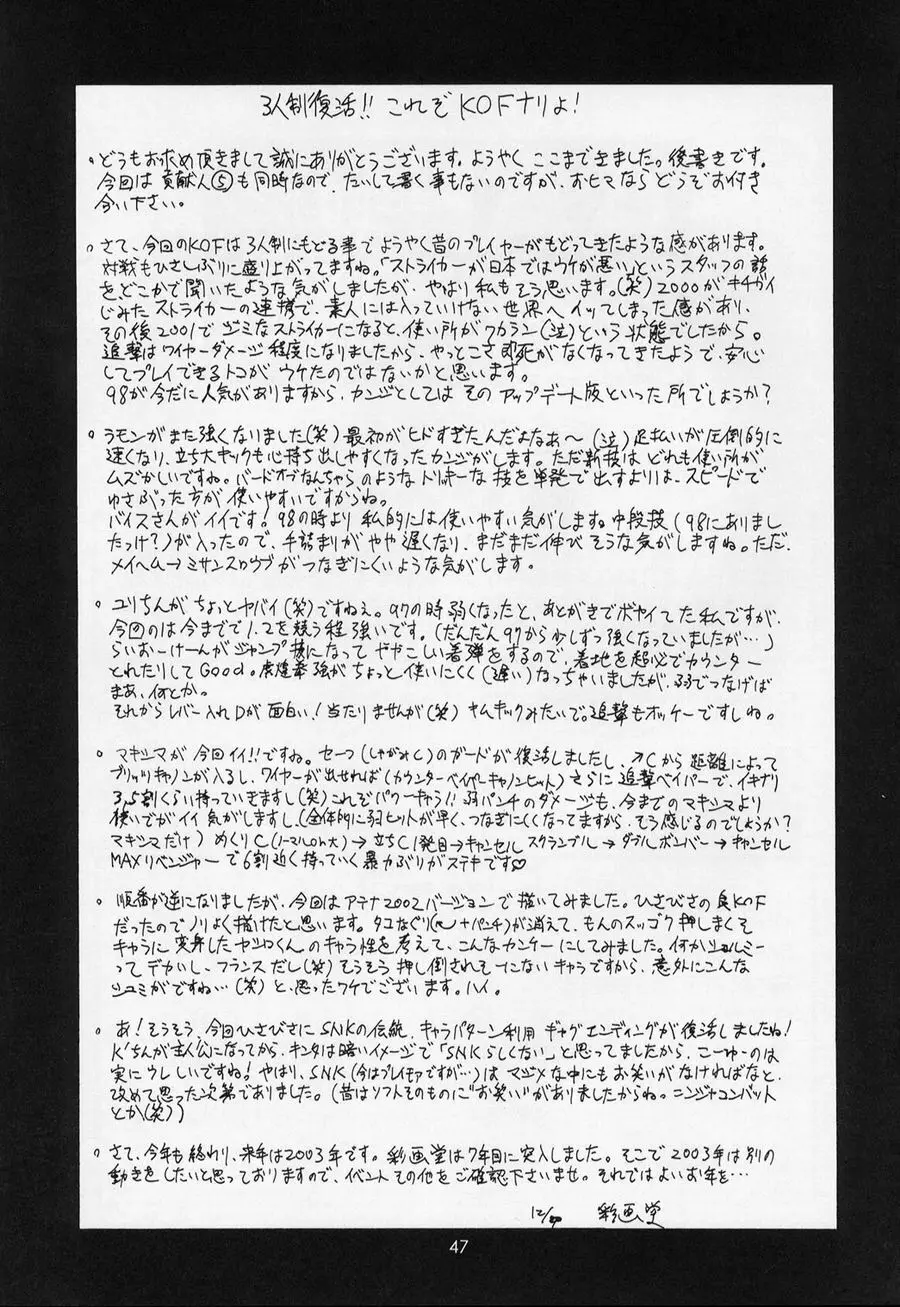 3人制復活!! これぞKOFナリよ!
。どうもお求め頂きまして誠にありがとうございます。ようやくここまできました。後書きです。
今回は貢献人⑤も同時なので、たいして書く事もないのですが、おヒマならどうぞお付き
合い下さい。
。さて、今回のKOFは3人制にもどる事でようやく昔のプレイヤーがもどってきたような感があります。
対戦もひさしぶりに盛り上がってますね。「ストライカーが日本ではウケが悪い」というスタッフの話
を、どこかで聞いたような気がしましたが、やはり私もそう思います。(笑)2000がキチガイ
じみたストライカーの連携で、素人には入っていけない世界へイッてしまった感があり、
その後2001でジミなストライカーになると、使い所がワカラン(泣)という状態でしたから。
追撃はワイヤーダメージ程度になりましたから、やっとこさ即死がなくなってきたようで、安心
してプレイできるトコがウケたのではないかと思います。
98が今だに人気がありますから、カンジとしてはそのアップデート版といった所でしょうか?
。ラモンがまた強くなりました(笑)最初がヒドすぎたんだよなあ〜(泣)足払いが圧倒的に
速くなり、立ち大キックも心持ち出しやすくなったカンジがします。ただ新技はどれも使い所が
ムズかしいですね。バードオブなんちゃらのようなトリッキーな技を単発で出すよりは、スピードで
ゆさぶった方が使いやすいですからね。
バイスさんがイイです!98の時より私的には使いやすい気がします。中段技(98にありまし
たっけ?)が入ったので、手詰まりがやや遅くなり、まだまだ伸びそうな気がしますね。ただ、
メイヘム→ミサンスロウプがつなぎにくいような気がします。
。ユリちんがちょっとヤバイ(笑)ですねぇ。97の時弱くなったと、あとがきでボヤイてた私ですが、
今回のは今までで1.2を競う程強いです。(だんだん97から少しずつ強くなっていましたが…」
らいおーけーんがジャンプ技になってややこしい着弾をするので、着地を超必でカウンター
とれたりしてGood。虎煌拳強がちょっと使いにくく(遅い)なっちゃいましたが、弱でつなげば
まあ、何とか。
それからレバー入れDが面白い!当たりませんが(笑)キムキックみたいで。追撃もオッケーですしね。
。マキシマが今回イイ!!ですね。セーフ(しゃがみC)のガードが復活しましたし、↗Cから距離によって
ブリッツキャノンが入るし、ワイヤーが出せれば(カウンターベイパーキャノンヒット)さらに追撃ベイパーで、イキナリ
3,5割くらい持っていきますし(笑)これぞパワーキャラ!!弱パンチのダメージも、今までのマキシマより
使いでがイイ気がしますし、(全体的に弱ヒットが早く、つなぎにくくなってますから、そう感じるのでしょうか?
マキシマだけ)めくりC(ノーマル小大)→立ちC1発目→キャンセルスクランブル→ダブルボンバー→キャンセル
MAXリベンジャーで6割近く持っていく暴力ぶりがステキです♡
。順番が逆になりましたが、今回はアテナ2002バージョンで描いてみました。ひさびさの良KOF
だったのでノリよく描けたと思います。タコなぐり(+パンチ)が消えて、もんのスッゴク押しまくそ
キャラに変身したヤシロくんのキャラ性を考えて、こんなカンケーにしてみました。何かシェルミー
ってデカいし、フランスだし(笑)そうそう押し倒されそーにないキャラですから、意外にこんな
シュミがですね…(笑)と、思ったワケでございます。ハイ。
。あ!そうそう、今回ひさびさにSNKの伝統、キャラパターン利用ギャグエンディングが復活しましたね!
K'ちんが主人公になってから、キンタは暗いイメージで「SNKらしくない」と思ってましたから、こーゆーのは
実にウレしいですね!やはり、SNK(今はプレイモアですが…)は、マジメな中にもお笑いがなければなと、
改めて思った次第でありました。(昔はソフトそのものに"お笑い"がありましたからね。ニンジャコンバット
とか(笑))
。さて、今年も終わり、来年は2003年です。彩画堂は7年目に突入しました。そこで2003年は別の
動きをしたいと思っておりますので、イベントその他をご確認下さいませ。それではよいお年を…
12/ 彩画堂
47